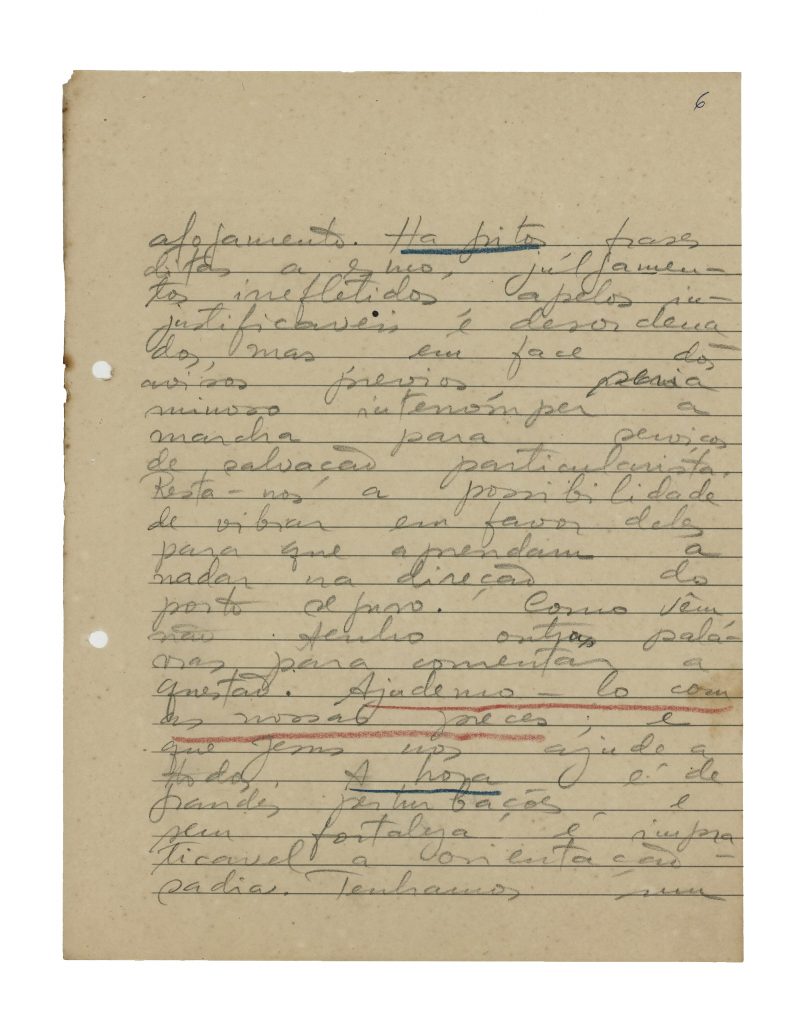 6
afogamento. Ha gritos frases
ditas a esmo, júlgamen-
tos irrefletidos apelos in-
justificaveis é desordena
dos, mas em face dos
avisos previos seria
minoso interrómper a
marcha para serviços
de salvação particularista.
Resta-nos a possibilidade
de vibrar em favor deles
para que aprendam a
nadar na direção do
porto seguro. Como vêm
não tenho outras palá-
vras para comentar a
questão. Ajudemo-lo com
as nossas preces; e
que Jesus nos ajude a
todos. A hora é de
grandes perturbações e
sem fortaleza é impra
ticavel a orientação
sadia. Tenhamos